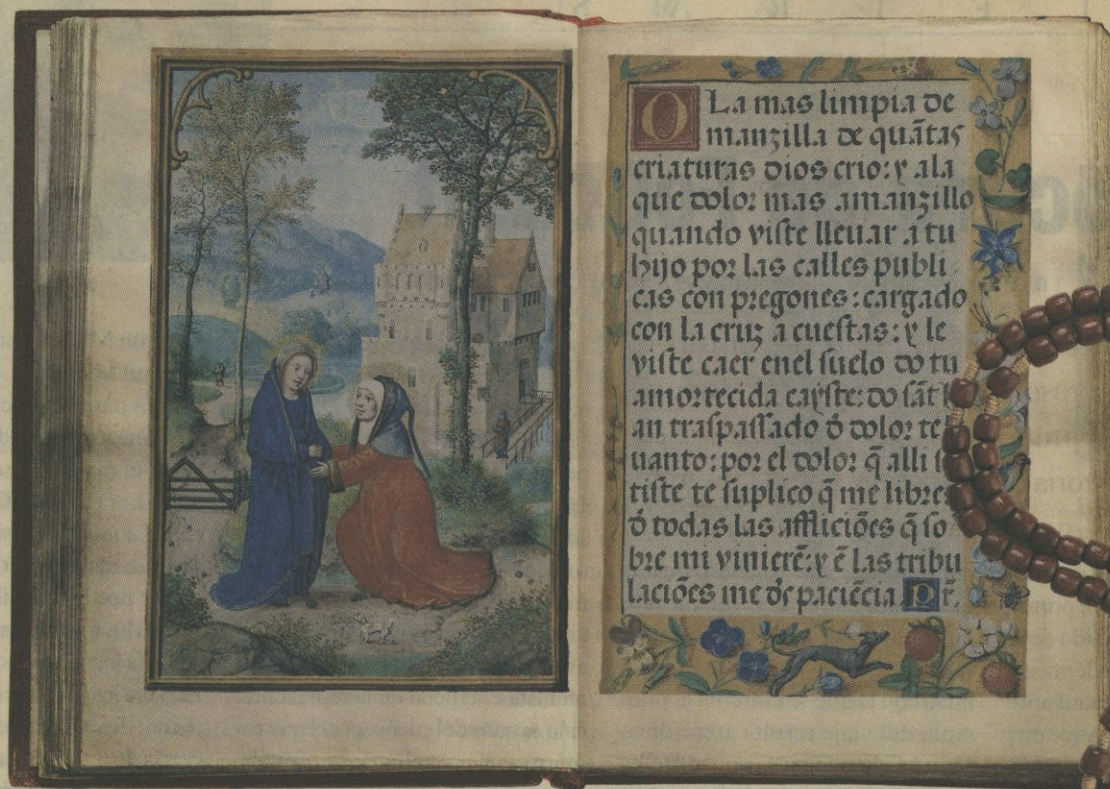 O La mas limpia de
manzilla de quãtas
criaturas dios crio: y ala
que dolor mas amanzillo
quando viste lleuar a tu
hijo por las calles publi
cas con pregones: cargado
con la cruz a cuestas: y le
viste caer enel suelo do tu
amortecida cayste: do sãt
an traspassado õ dolor te
uanto: por el dolor q̃ alli
tiste te suplico q̃ me libres
õ todas las afflictiões q̃ so
bre mi vinierẽ: y ẽ las tribu
laciões me des paciẽcia. Pr̃.